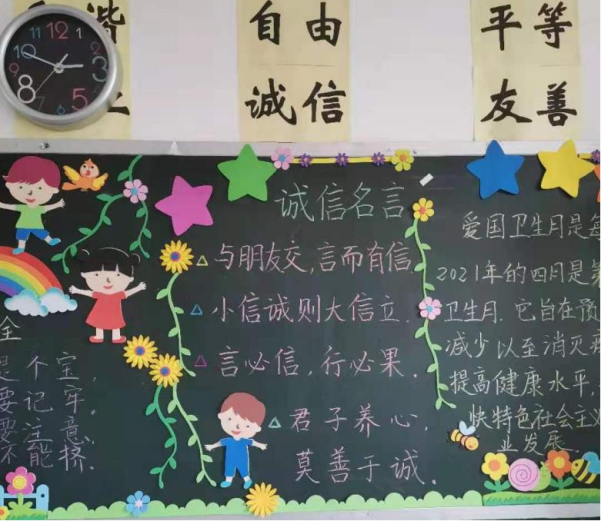 谐
自由
平等
诚信
友善
12
3
全
个宝,
要记牢,
要注意,
不能挤.
诚信名言
与朋友交,言而有信
小信诚则大信立.
言必信,行必果.
君子养心,
莫善于诚.
爱国卫生月是
2021年的四月是第
卫生月.它旨在预
减少以至消灭
提高健康水平,
快特色社会主义
业发展